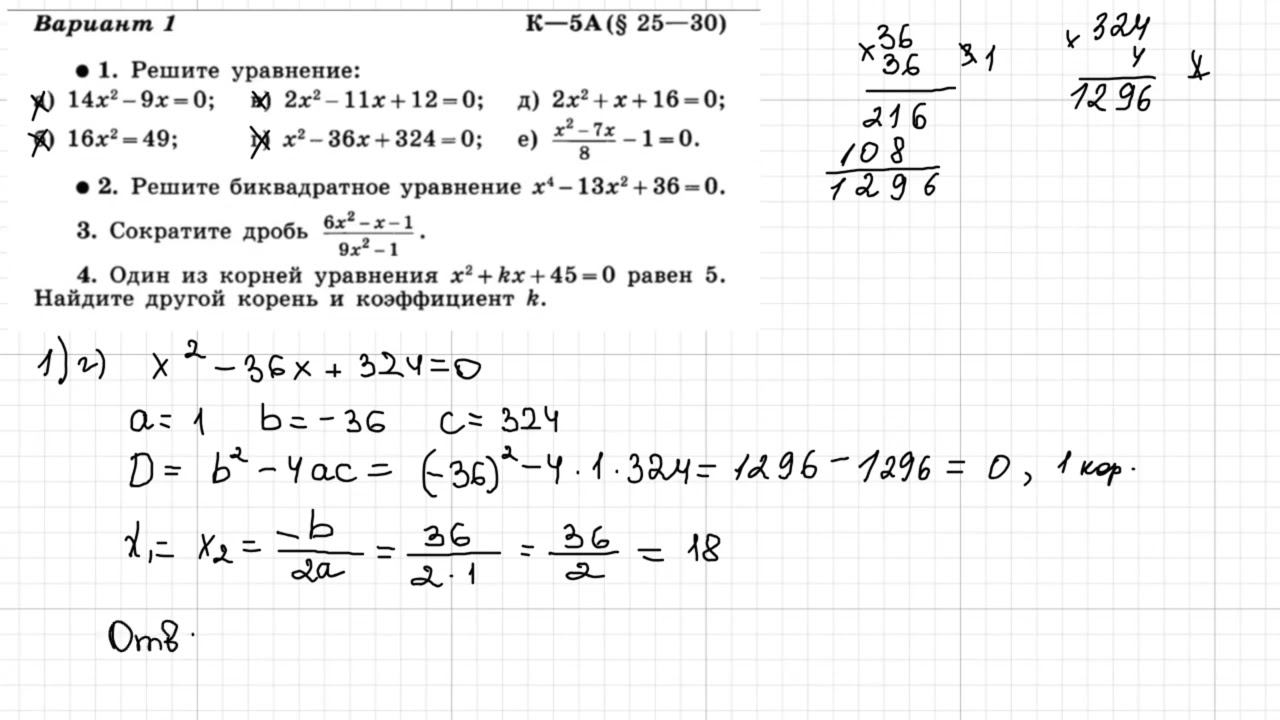 Вариант 1 К—5А (§ 25—30)
• 1. Решите уравнение:
14x² − 9x = 0; 2x² − 11x + 12 = 0; д) 2x² + x + 16 = 0;
16x² = 49; x² − 36x + 324 = 0; е) (x² − 7x)/8 − 1 = 0.
• 2. Решите биквадратное уравнение x⁴ − 13x² + 36 = 0.
3. Сократите дробь (6x² − x − 1)/(9x² − 1).
4. Один из корней уравнения x² + kx + 45 = 0 равен 5.
Найдите другой корень и коэффициент k.
× 36
36 1
216
108
1296
× 324
4
1296
1) г) x² − 36x + 324 = 0
a = 1 b = −36 c = 324
D = b² − 4ac = (−36)² − 4 · 1 · 324 = 1296 − 1296 = 0, 1 кор.
x₁ = x₂ = −b/2a = 36/(2 · 1) = 36/2 = 18
Отв.